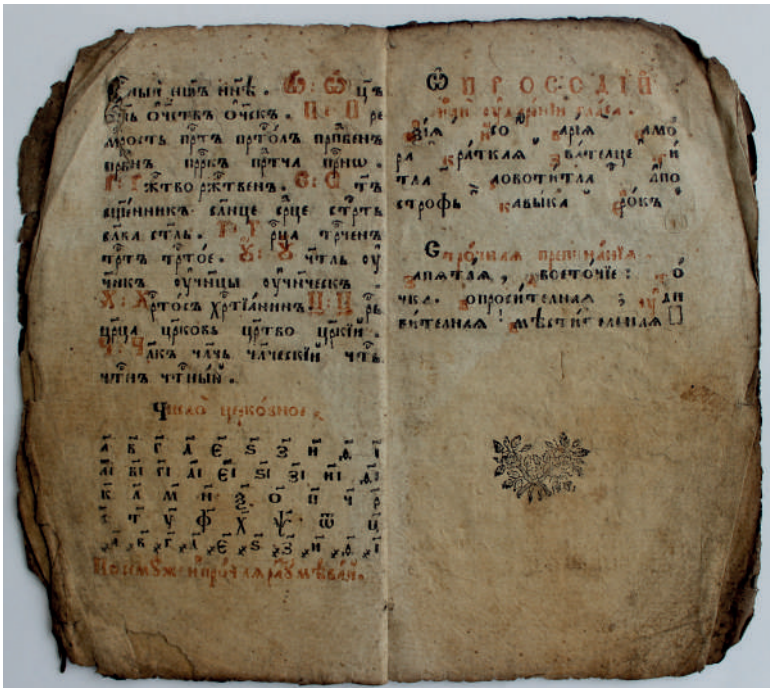 нн҃ѣ . Ѡ : Ѡ ц҃ъ
ѻч҃еств ѻч҃еск . П : П ре
мрость прт҃ъ прт҃олъ прп҃бенъ
прр҃къ прт҃ча прн҃ѡ .
ж҃тво рж҃твенъ . С : С т҃ъ
щ҃енникъ сл҃нце ср҃це стр҃ть
вл҃ка ст҃ль . Т : Т рц҃а трч҃енъ
трт҃ъ трт҃ое . Ѹ : Ѹ чт҃ль ѹ
чн҃къ ѹчн҃цы ѹчн҃ческ .
Х : Х рт҃осъ хрт҃їанинъ Ц : Ц рь
црц҃а цр҃ковь цр҃тво цр҃кїй .
Ч : Ч лк҃ъ чл҃чь чл҃ческїй чт҃ь
чт҃нъ чт҃ный .
Число церковное .
а҃ в҃ г҃ д҃ є҃ ѕ҃ з҃ и҃ ѳ҃ і҃
аі҃ ві҃ гі҃ ді҃ єі҃ ѕі҃ зі҃ иі҃ ѳі҃
к҃ л҃ м҃ н҃ ѯ҃ о҃ п҃ ч҃ р҃
с҃ т҃ у҃ ф҃ х҃ ѱ҃ ѿ҃ ц҃
҂а҃ ҂в҃ ҂г҃ ҂д҃ ҂є҃ ҂ѕ҃ ҂з҃ ҂и҃ ҂ѳ҃ ҂і҃
Ѡ ПРОСОДІЙ
ѹдаренїи гласа .
Ѻзїѧ исо варїѧ камо
ра краткаѧ звателце ти
тла словотитла апо
строфь кавыка ерокъ
Строчнаѧ препинанїѧ .
запѧтаѧ , двоеточїе : то
чка . вопросителнаѧ ; ѹди
вителнаѧ ! мѣстителнаѧ []